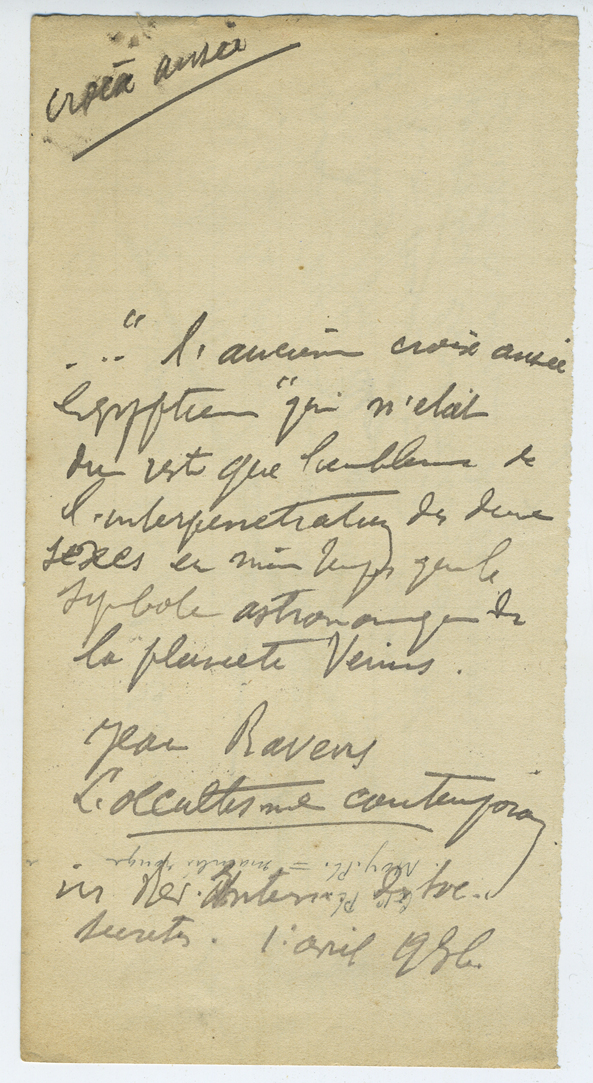 croix ansée
... " l'ancienne croix ansée
Egyptienne " qui n'était
du reste que l'emblème de
l'interpénétration des deux
sexes en même temps que le
symbole astronomique de
la planète Vénus.
Jean Ravens
L'occultisme contemporain
in Rev. Intern. des soc.
secrètes. 1 avril 193